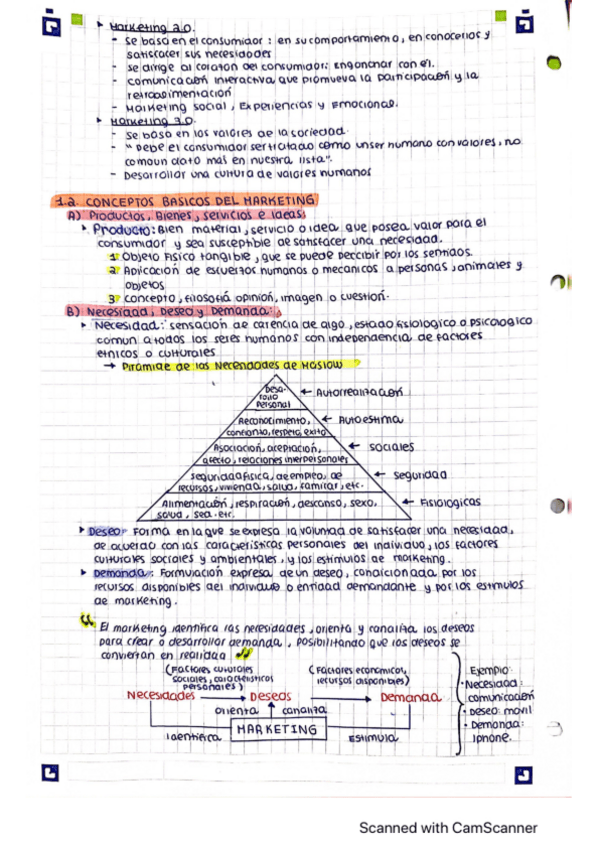 ▸ Marketing 2.0.
- Se basa en el consumidor: en su comportamiento, en conocerlos y
satisfacer sus necesidades
- Se dirige al corazón del consumidor: enganchar con él.
- Comunicación interactiva que promueva la participación y la
retroalimentación
- Marketing social, Experiencias y Emocional.
▸ Marketing 3.0.
- Se basa en los valores de la sociedad.
- "Debe el consumidor ser tratado como un ser humano con valores, no
como un dato más en nuestra lista".
- Desarrollar una cultura de valores humanos
1.2. CONCEPTOS BASICOS DEL MARKETING
A) Productos, Bienes, servicios e Ideas
▸ Producto: Bien material, servicio o idea que posea valor para el
consumidor y sea susceptible de satisfacer una necesidad.
1 Objeto físico tangible, que se puede percibir por los sentidos.
2 Aplicación de esfuerzos humanos o mecánicos a personas, animales y
objetos
3 Concepto, filosofía opinión, imagen o cuestión.
B) Necesidad, Deseo y Demanda:
▸ Necesidad: sensación de carencia de algo, estado fisiológico o psicológico
común a todos los seres humanos con independencia de factores
étnicos o culturales
→ Pirámide de las Necesidades de Maslow
Desa-
rrollo
Personal
← Autorrealización
Reconocimiento,
confianza, respeto, éxito
← Autoestima
Asociación, aceptación,
afecto, relaciones interpersonales
← sociales
seguridad física, de empleo, de
recursos, vivienda, salud, familiar, etc.
← seguridad
Alimentación, respiración, descanso, sexo,
salud, sed. etc.
← Fisiológicas
▸ Deseo: Forma en la que se expresa la voluntad de satisfacer una necesidad,
de acuerdo con las características personales del individuo, los factores
culturales sociales y ambientales, y los estímulos de marketing.
▸ Demanda: Formulación expresa de un deseo, condicionada por los
recursos disponibles del individuo o entidad demandante y por los estímulos
de marketing.
“ El marketing identifica las necesidades, orienta y canaliza los deseos
para crear o desarrollar demanda, posibilitando que los deseos se
conviertan en realidad ”
(Factores culturales
sociales, características
personales)
(Factores económicos,
recursos disponibles)
Necesidades → Deseos → Demanda
orienta canaliza
Identifica MARKETING Estimula
Ejemplo:
· Necesidad:
comunicación
· Deseo: móvil
· Demanda:
Iphone.
Scanned with CamScanner